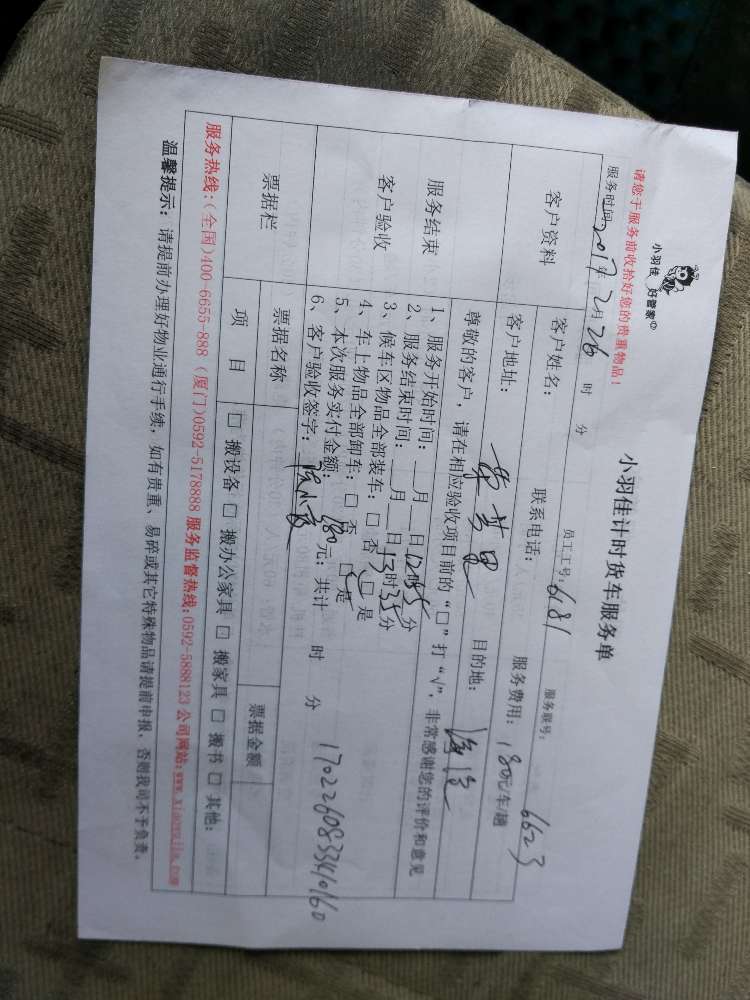 小羽佳 好管家
小羽佳计时货车服务单
请您于服务前收拾好您的贵重物品！
员工工号：6181 服务联号：6623
服务时间：2017年2月26 时 分
客户资料 客户姓名： 联系电话： 服务费用：180元/车/趟
客户地址： 目的地：海沧
尊敬的客户，请在相应验收项目前的“□”打“√”，非常感谢您的评价和意见
服务结束
客户验收
1、服务开始时间：__月__日12时55分
2、服务结束时间：__月__日13时35分
3、候车区物品全部装车：□ 否 □ 是
4、车上物品全部卸车：□ 否 □ 是
5、本次服务实付金额：180元；共计 时 分
6、客户验收签字：
1702260833410160
票据栏 票据名称 票据金额
项 目 □ 搬设备 □ 搬办公家具 □ 搬家具 □ 搬书 □ 其他：
服务热线：(全国)400-6655-888 (厦门)0592-5178888 服务监督热线：0592-5888123 公司网站：www.xiaoyujia.com
温馨提示：请提前办理好物业通行手续，如有贵重、易碎或其它特殊物品请提前申报，否则我司不予负责。